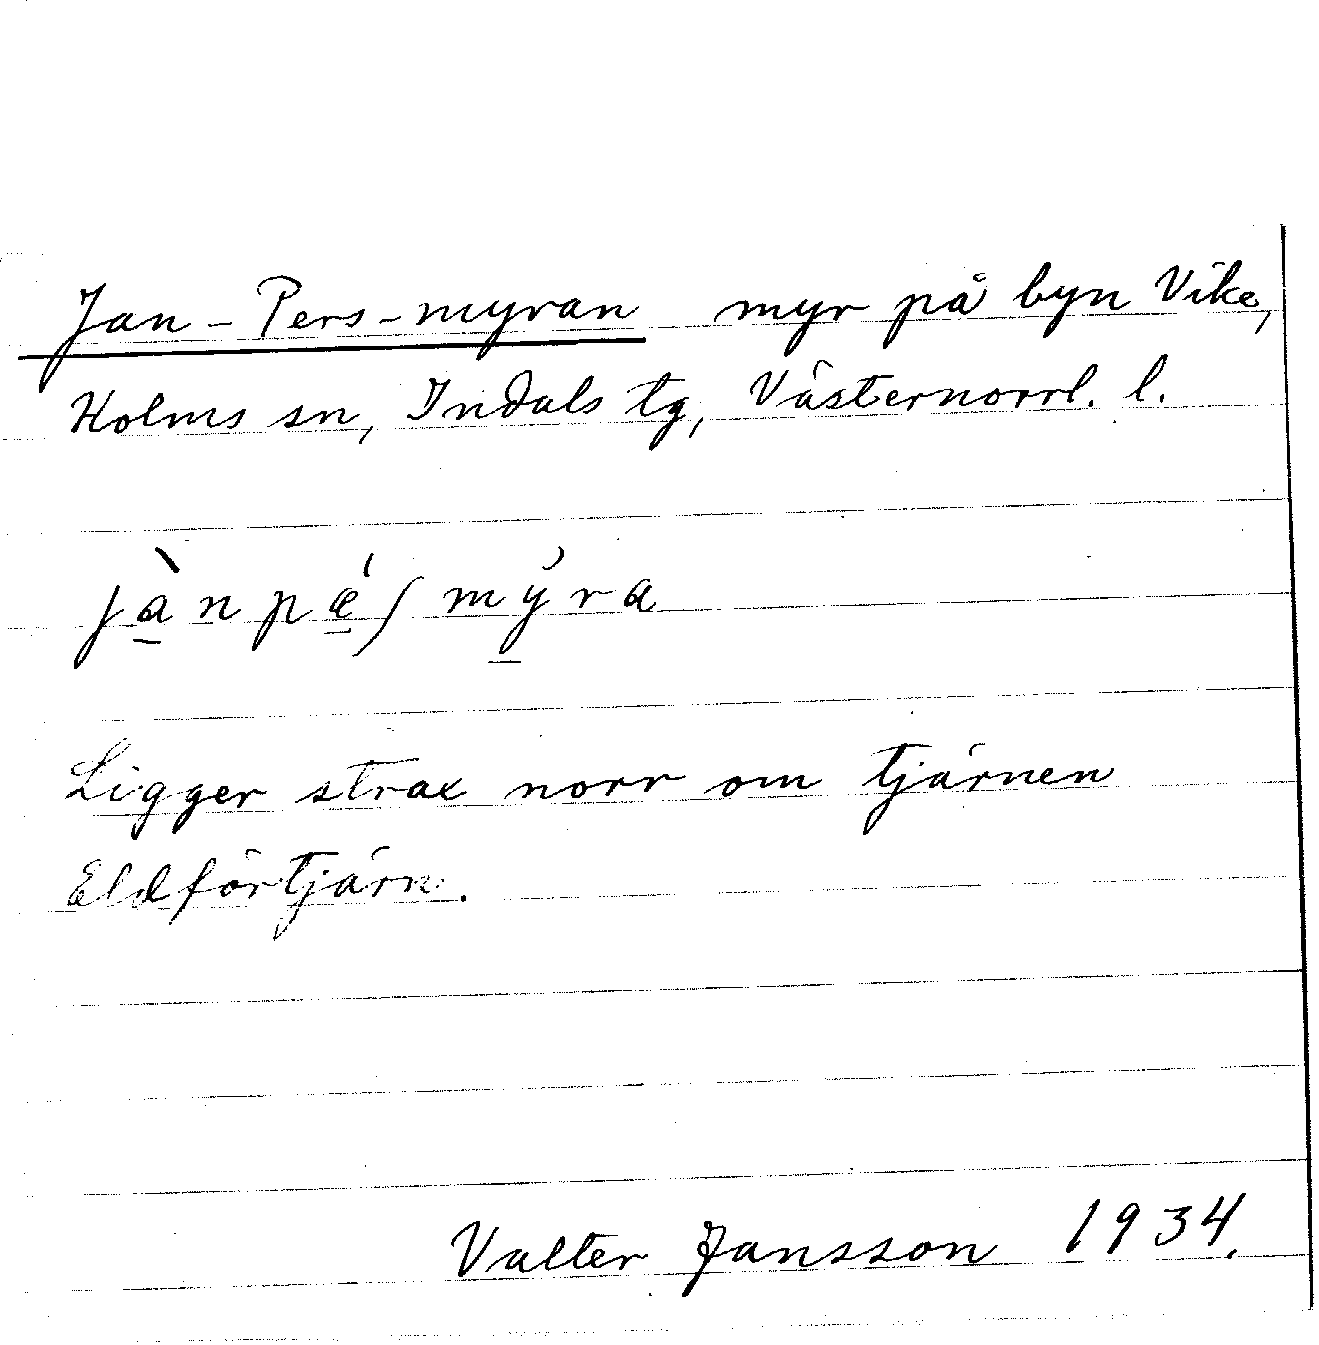 Jan-Pers-myran myr på byn Vike,
Holms sn, Indals tg, Västernorrl. l.
jànpǽʃmy̓ra
Ligger strax norr om tjärnen
Eldförtjärn.
Valter Jansson 1934.